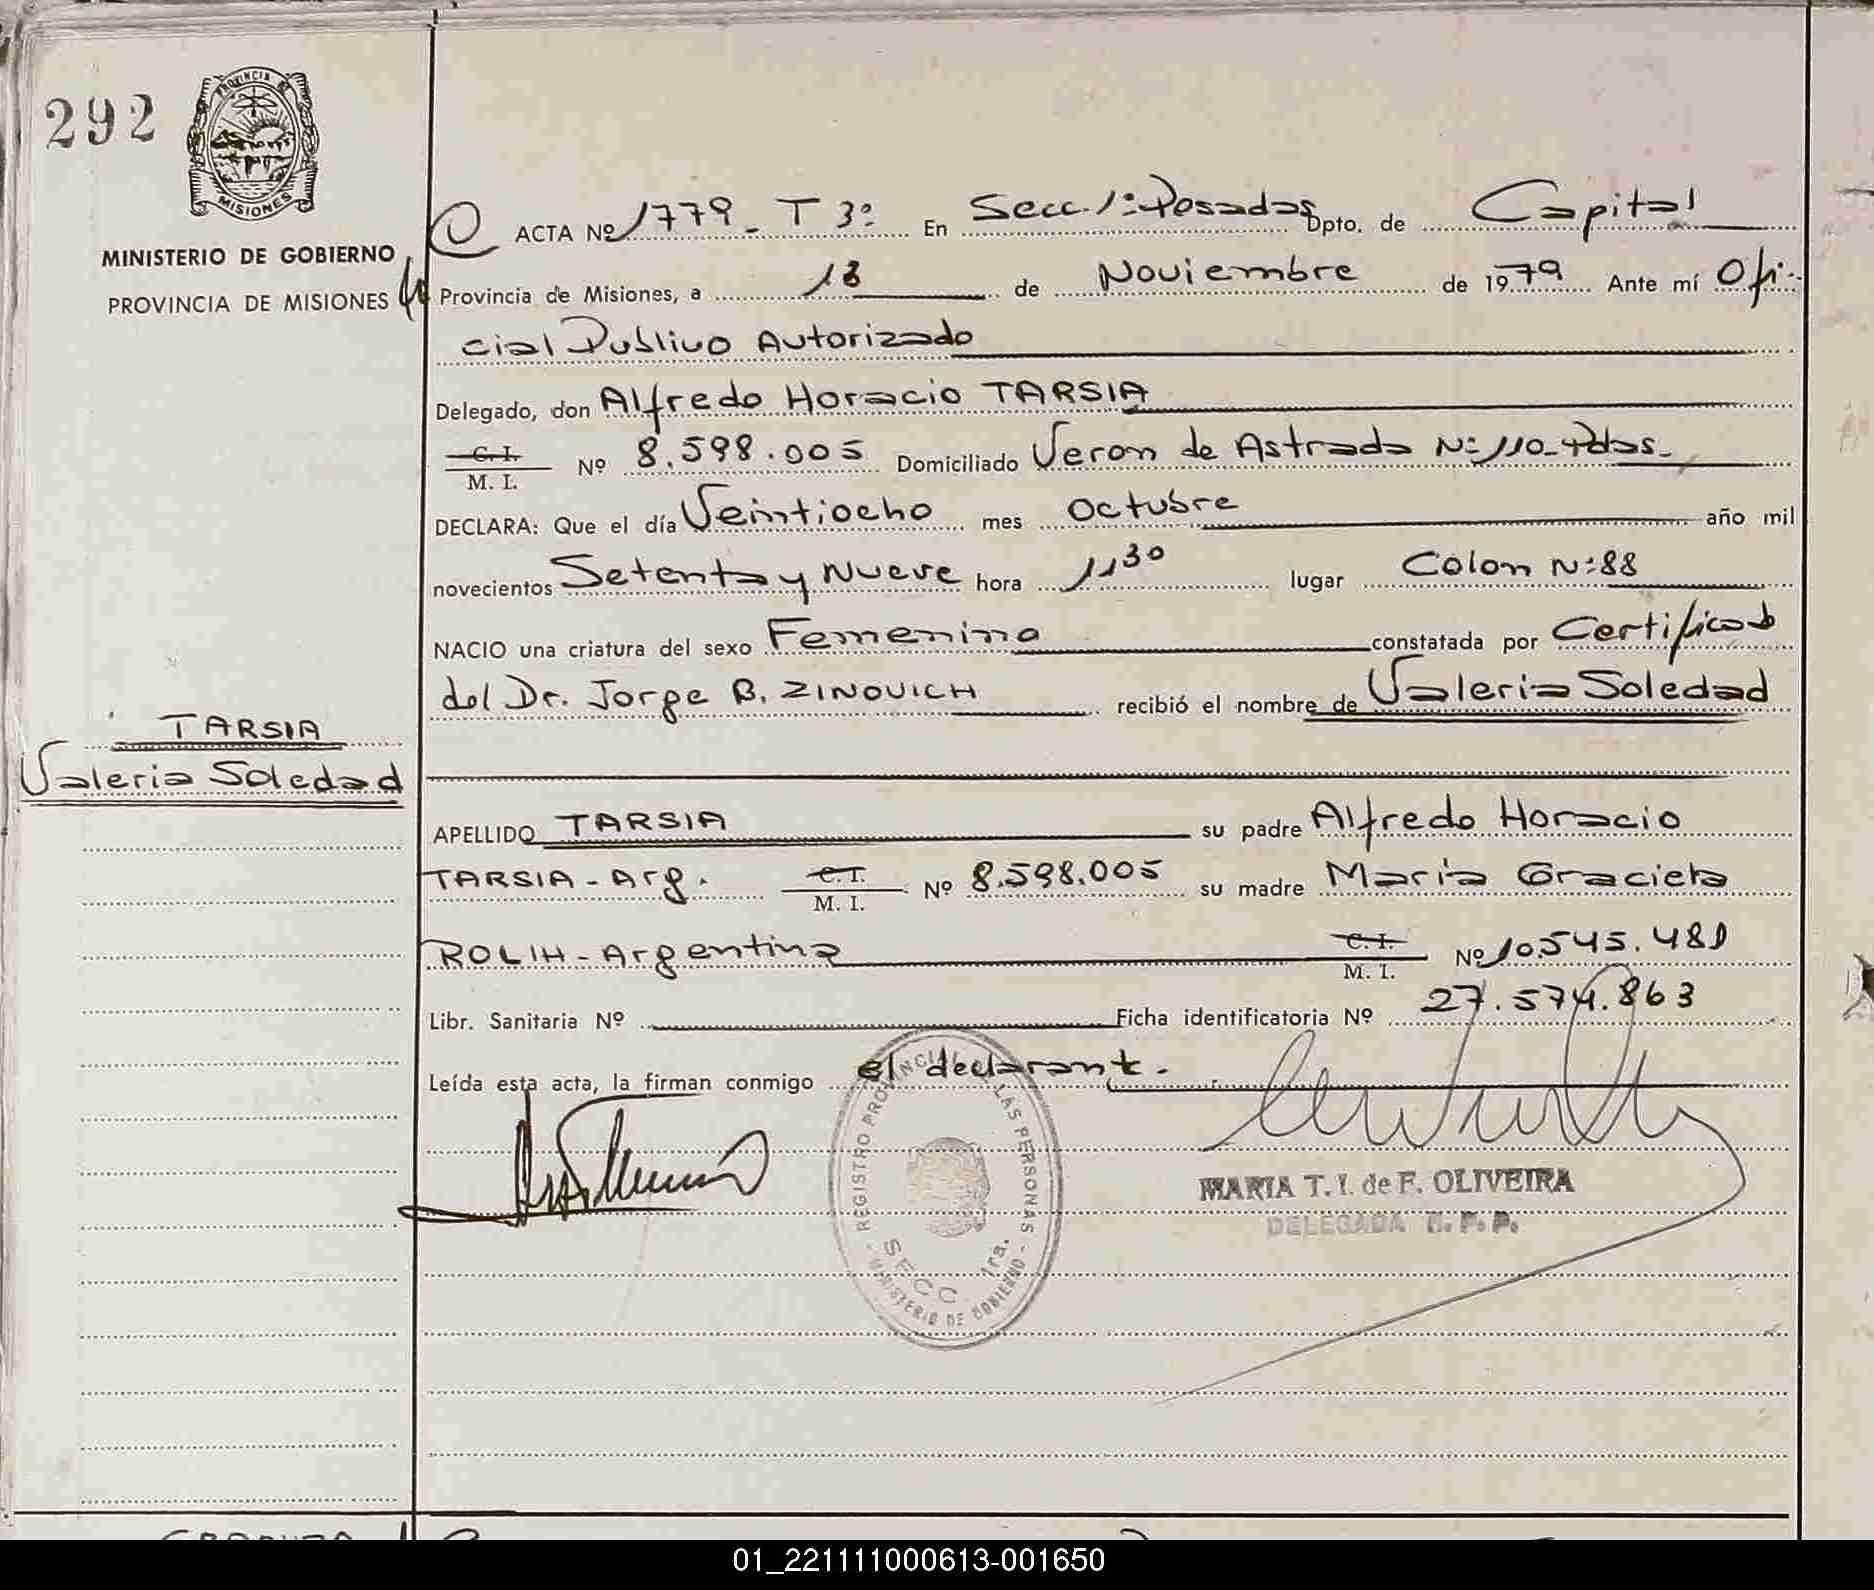 292
PROVINCIA DE
MISIONES
MINISTERIO DE GOBIERNO
PROVINCIA DE MISIONES
ACTA Nº 1779 - T 3º En Secc. 1ª Posadas Dpto. de Capital
Provincia de Misiones, a 13 de Noviembre de 1979 Ante mí Ofi-
cial Publico Autorizado
Delegado, don Alfredo Horacio TARSIA
C. I.
M. I. Nº 8.598.005 Domiciliado Veron de Astrada Nº 110 - Pdas.
DECLARA: Que el día Veintiocho mes octubre año mil
novecientos Setenta y Nueve hora 11 30 lugar Colon Nº 88
NACIO una criatura del sexo Femenino constatada por Certificado
del Dr. Jorge B. ZINOVICH recibió el nombre de Valeria Soledad
TARSIA
Valeria Soledad
APELLIDO TARSIA su padre Alfredo Horacio
TARSIA - Arg. C. I.
M. I. Nº 8.598.005 su madre Maria Graciela
ROLIH - Argentina C. I.
M. I. Nº 10.545.481
Libr. Sanitaria Nº Ficha identificatoria Nº 27.574.863
Leída esta acta, la firman conmigo el declarante.
REGISTRO PROVINCIAL DE LAS PERSONAS
SECC. 1ra.
MINISTERIO DE GOBIERNO
MARIA T. I. de F. OLIVEIRA
DELEGADA R. P. P.
01_221111000613-001650